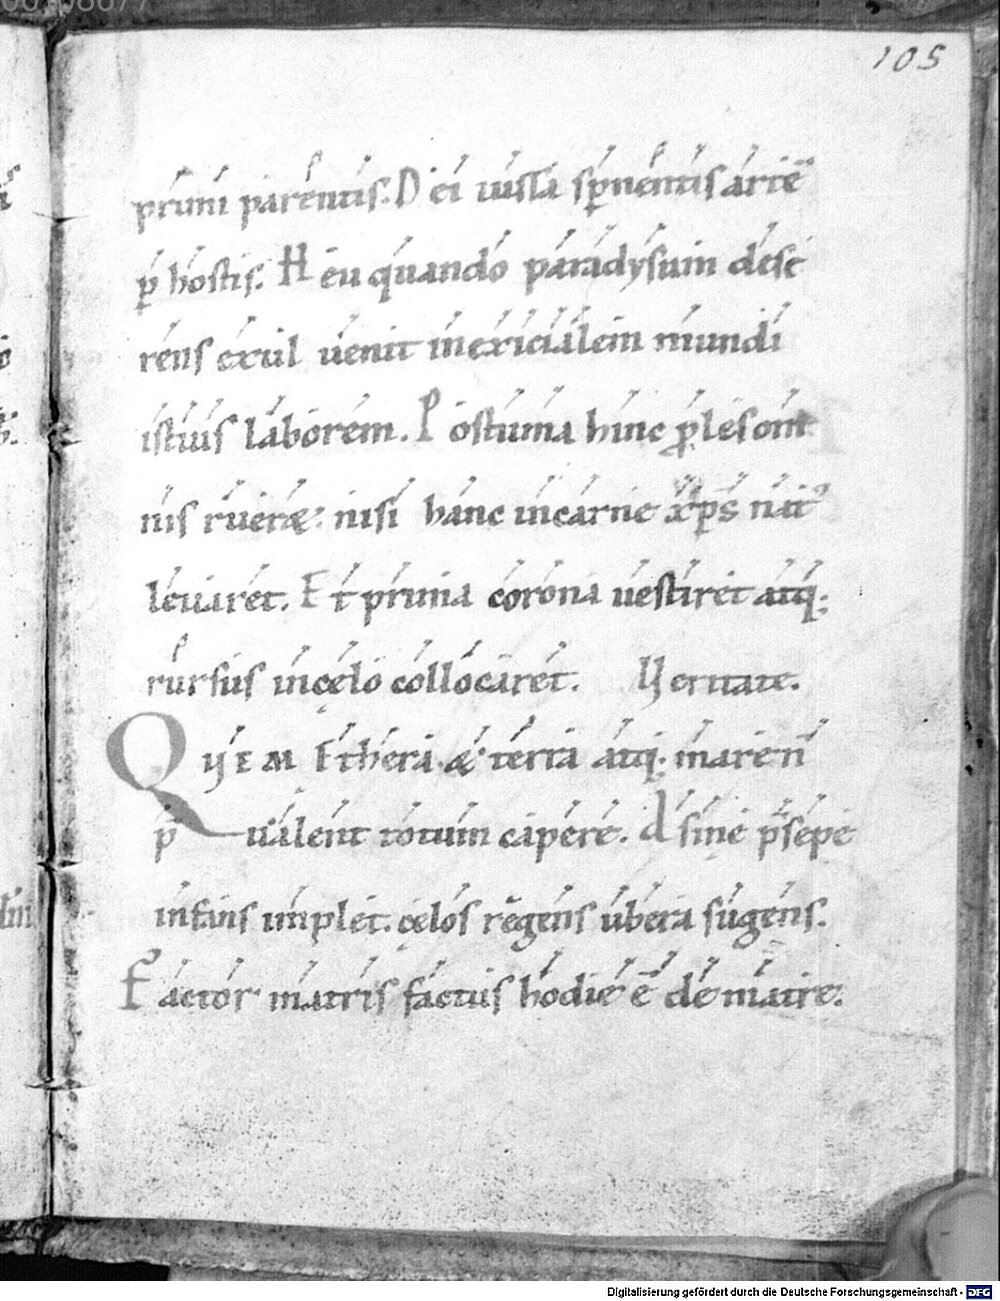 105
primi parentis. Dei iussa spnentis arte
p hostis. Heu quando paradysum dese
rens exul uenit in exicialem mundi
istius laborem. Postuma hinc ples om
nis rueræ: nisi hanc in carne xp̄s nat᷒
leuaret. Et prima corona uestiret atq;
rursus in cęlo collocaret. Uersus.
QUEM Ethera & terra atq; mare n̄
p̄ualent totum capere. Asine p̄sepe
infans implet. cęlos regens ubera sugens.
Factor matris factus hodie ē de matre.
Digitalisierung gefördert durch die Deutsche Forschungsgemeinschaft - DFG